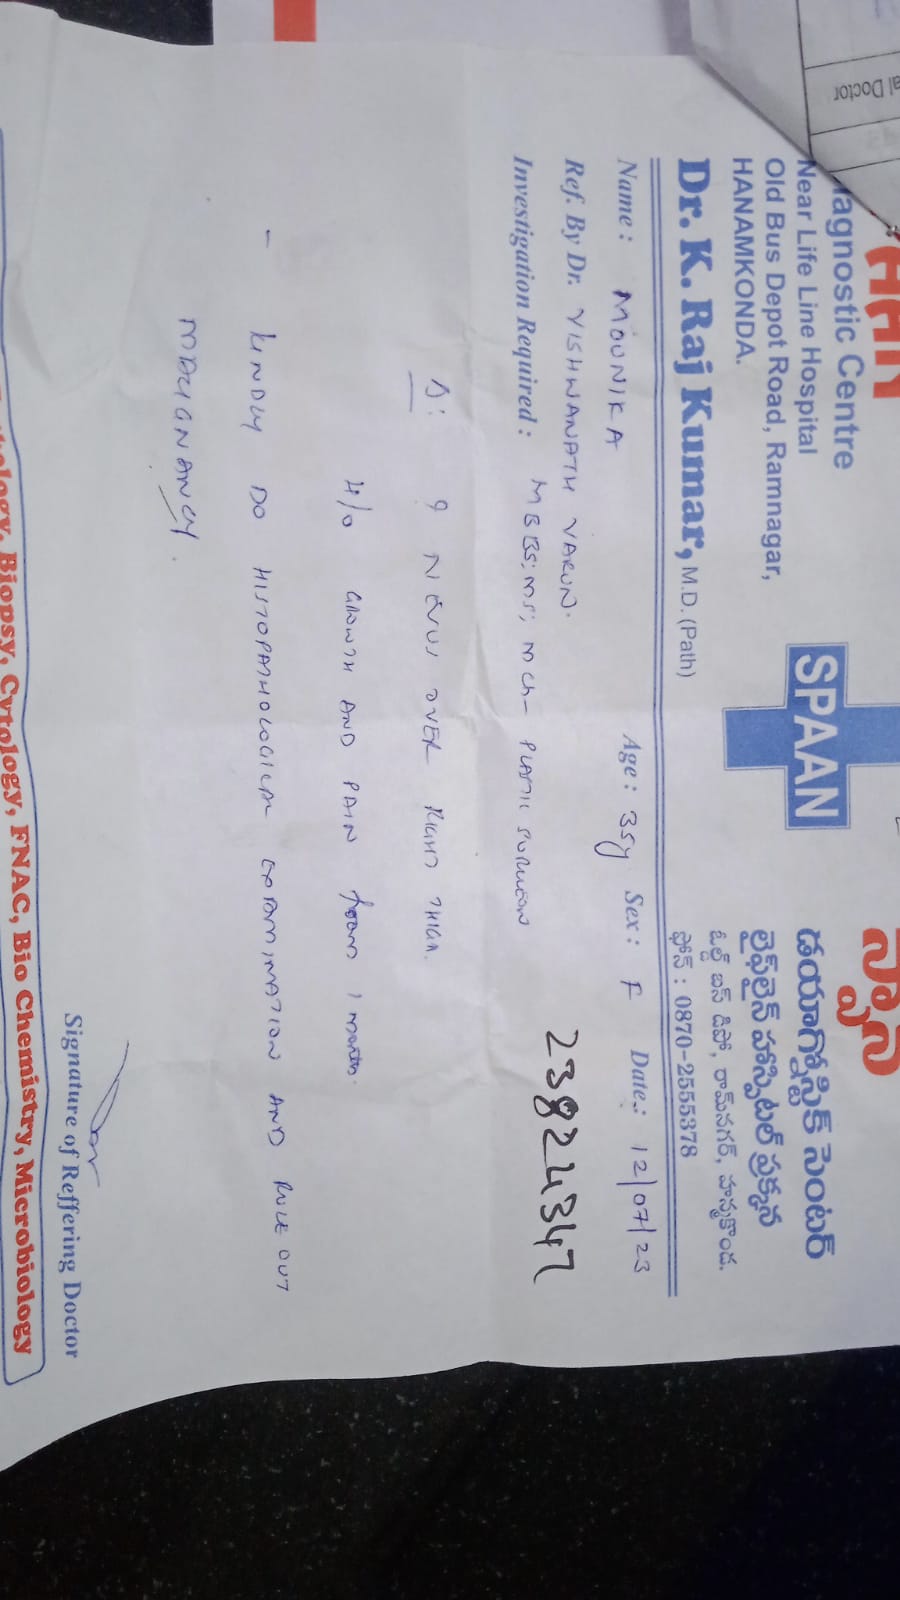 స్పాన్
agnostic Centre
Near Life Line Hospital
Old Bus Depot Road, Ramnagar,
HANAMKONDA.
SPAAN
డయాగ్నోస్టిక్ సెంటర్
లైఫ్‌లైన్ హాస్పిటల్ ప్రక్కన
ఓల్డ్ బస్ డిపో, రామ్‌నగర్, హన్మకొండ.
ఫోన్ : 0870-2555378
Dr. K. Raj Kumar, M.D. (Path)
Name : MOUNIKA Age : 35y Sex : F Date : 12/07/23
Ref. By Dr. VISHWANATH VARUN.
23824347
Investigation Required : MBBS; MS; MCh - PLASTIC SURGEON
D: ? NEVUS OVER RIGHT THIGH.
H/O GROWTH AND PAIN from 1 month.
- KINDLY DO HISTOPATHOLOGICAL EXAMINATION AND RULE OUT
MALIGNANCY.
Signature of Reffering Doctor
thology, Biopsy, Cytology, FNAC, Bio Chemistry, Microbiology
al Doctor